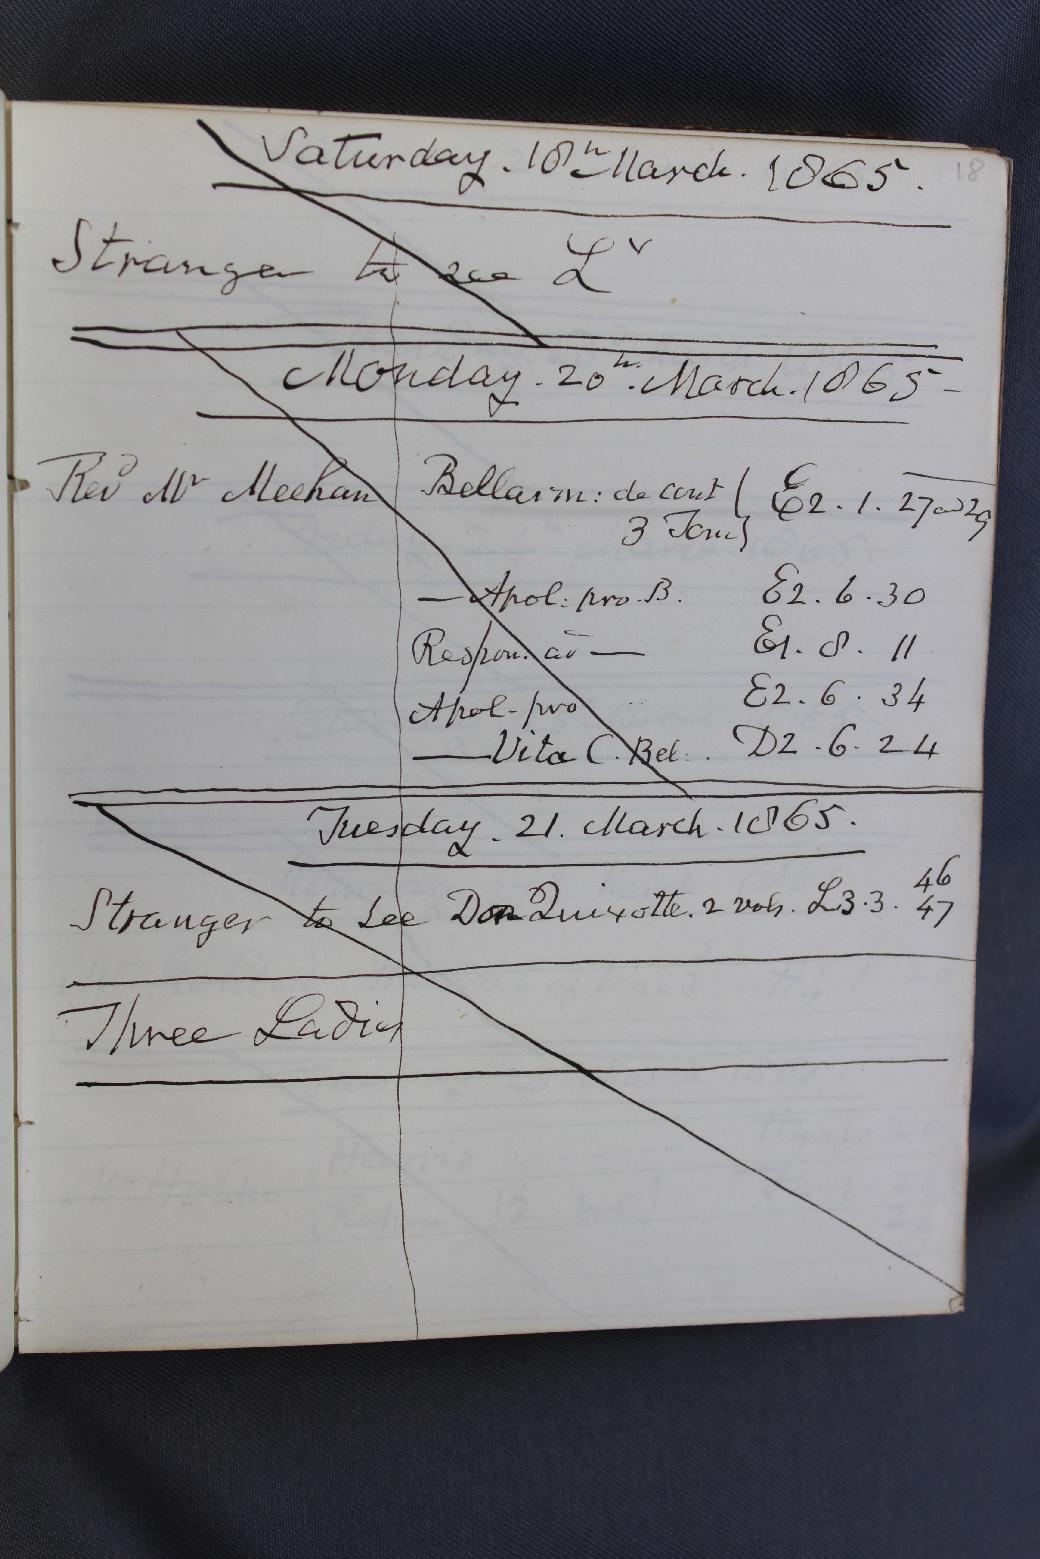 18
Saturday. 18th March. 1865.
Stranger to see Lr
Monday. 20th. March. 1865-
Revd Mr Meehan Bellarm: de cont ( E2. 1. 27 and 29
3 Tom)
— Apol: pro B. E2. 6. 30
Respon. ad — E1. 8. 11
Apol. pro E2. 6. 34
— Vita C. Bel. D2. 6. 24
Tuesday. 21. March. 1865.
Stranger to see Don Quixotte. 2 vols. L3. 3. 46
47
Three Ladies